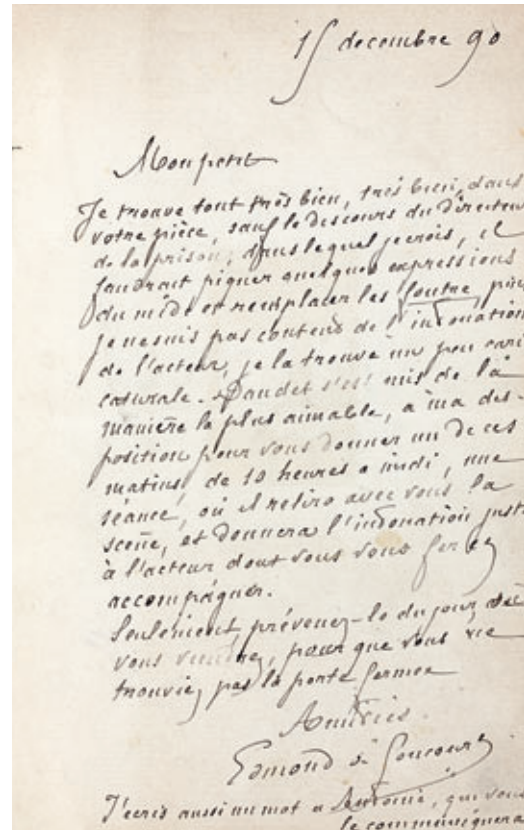 15 decembre 90
Mon petit
Je trouve tout très bien, très bien, dans
votre pièce, sauf le discours du directeur
de la prison, dans lequel je crois, il
faudrait piquer quelques expressions
du midi et remplacer les foutre, puis
je ne suis pas content de l'intonation
de l'acteur, je la trouve un peu cari
caturale. Daudet s'est mis de la
manière la plus aimable, à ma dis-
position pour vous donner un de ces
matins, de 10 heures a midi, une
séance, où il relira avec vous la
scène, et donnera l'intonation juste
à l'acteur dont vous vous ferez
accompagner.
Seulement, prévenez-le du jour où
vous viendrez, pour que vous ne
trouviez pas la porte fermée
Amitiés.
Edmond de Goncourt
J'écris aussi un mot a Antoine, que vous
le communiquera